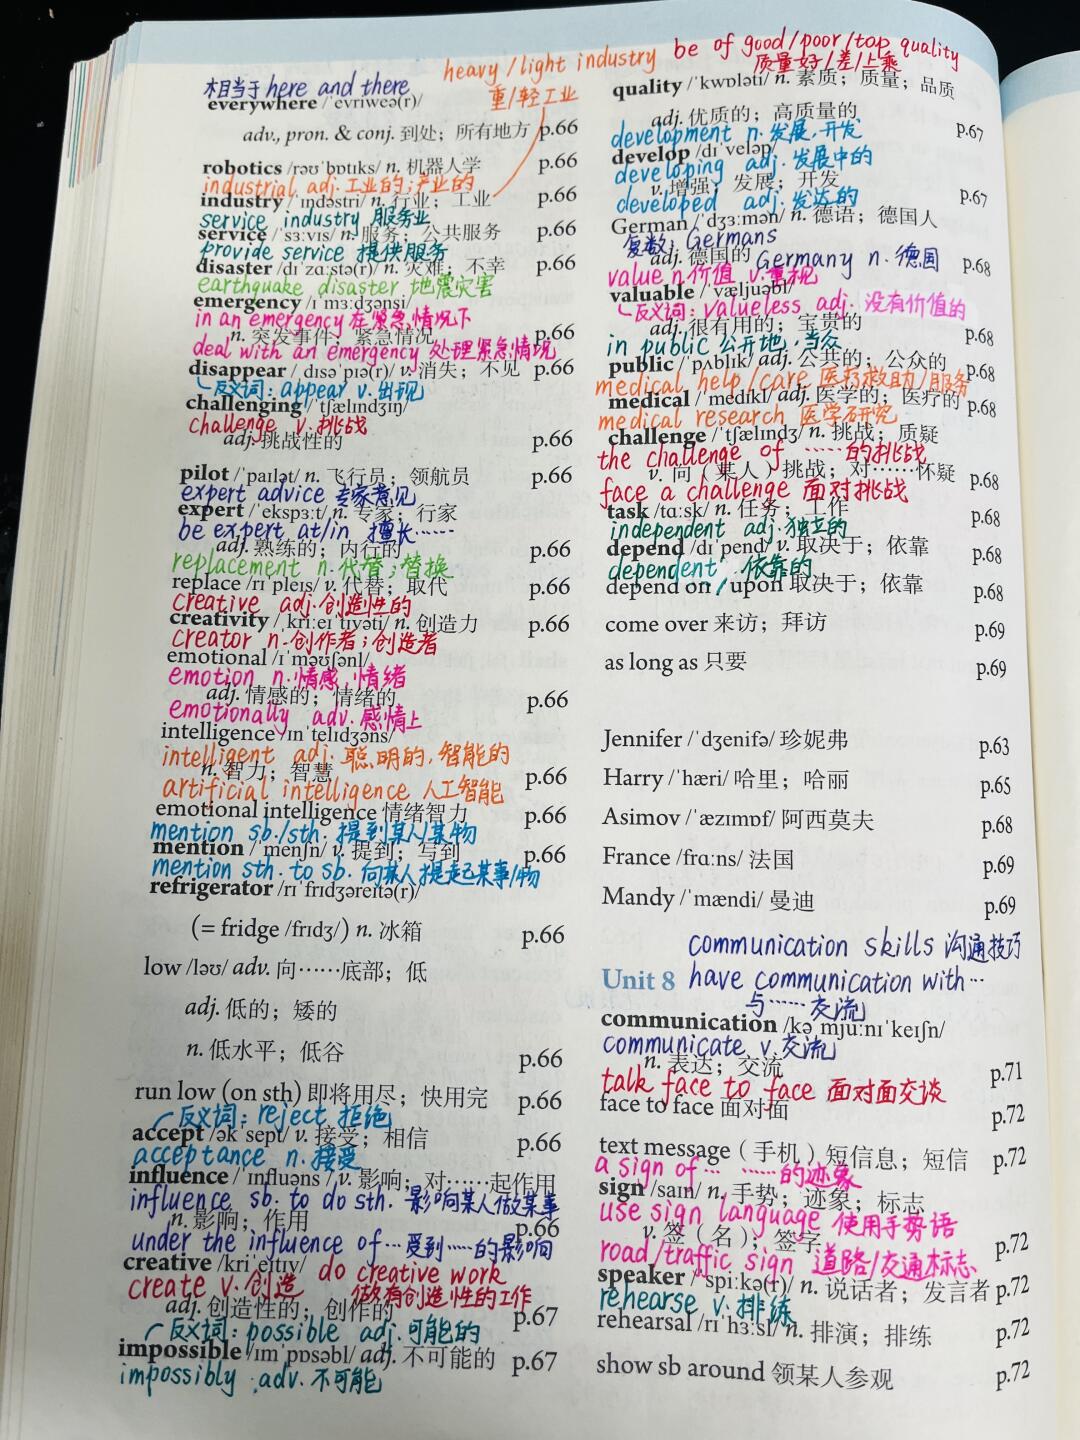 heavy/light industry
重/轻工业
相当于 here and there
everywhere /ˈevriweə(r)/
adv., pron. & conj. 到处；所有地方 p.66
robotics /rəʊˈbɒtɪks/ n. 机器人学 p.66
industrial adj. 工业的；产业的
industry /ˈɪndəstri/ n. 行业；工业 p.66
service industry 服务业
service /ˈsɜːvɪs/ n. 服务；公共服务 p.66
provide service 提供服务
disaster /dɪˈzɑːstə(r)/ n. 灾难；不幸 p.66
earthquake disaster 地震灾害
emergency /ɪˈmɜːdʒənsi/
in an emergency 在紧急情况下
n. 突发事件；紧急情况 p.66
deal with an emergency 处理紧急情况
disappear /ˌdɪsəˈpɪə(r)/ v. 消失；不见 p.66
反义词：appear v. 出现
challenging /ˈtʃælɪndʒɪŋ/
challenge v. 挑战
adj. 挑战性的 p.66
pilot /ˈpaɪlət/ n. 飞行员；领航员 p.66
expert advice 专家意见
expert /ˈekspɜːt/ n. 专家；行家
be expert at/in 擅长……
adj. 熟练的；内行的 p.66
replacement n. 代替；替换
replace /rɪˈpleɪs/ v. 代替；取代 p.66
creative adj. 创造性的
creativity /ˌkriːeɪˈtɪvəti/ n. 创造力 p.66
creator n. 创作者；创造者
emotional /ɪˈməʊʃənl/
emotion n. 情感，情绪
adj. 情感的；情绪的 p.66
emotionally adv. 感情上
intelligence /ɪnˈtelɪdʒəns/
intelligent adj. 聪明的，智能的
n. 智力；智慧 p.66
artificial intelligence 人工智能
emotional intelligence 情绪智力 p.66
mention sb./sth. 提到某人/某物
mention /ˈmenʃn/ v. 提到；写到 p.66
mention sth. to sb. 向某人提起某事/物
refrigerator /rɪˈfrɪdʒəreɪtə(r)/
(= fridge /frɪdʒ/) n. 冰箱 p.66
low /ləʊ/ adv. 向……底部；低
adj. 低的；矮的
n. 低水平；低谷 p.66
run low (on sth) 即将用尽；快用完 p.66
反义词：reject 拒绝
accept /əkˈsept/ v. 接受；相信 p.66
acceptance n. 接受
influence /ˈɪnfluəns/ v. 影响；对……起作用
influence sb. to do sth. 影响某人做某事
n. 影响；作用 p.66
under the influence of … 受到……的影响
creative /kriˈeɪtɪv/ do creative work
create v. 创造 做有创造性的工作
adj. 创造性的；创作的 p.67
反义词：possible adj. 可能的
impossible /ɪmˈpɒsəbl/ adj. 不可能的 p.67
impossibly adv. 不可能
be of good/poor/top quality
质量好/差/上乘
quality /ˈkwɒləti/ n. 素质；质量；品质
adj. 优质的；高质量的 p.67
development n. 发展，开发
develop /dɪˈveləp/
developing adj. 发展中的
v. 增强；发展；开发 p.67
developed adj. 发达的
German /ˈdʒɜːmən/ n. 德语；德国人
复数：Germans
adj. 德国的 Germany n. 德国 p.68
value n. 价值 v. 重视
valuable /ˈvæljuəbl/
反义词：valueless adj. 没有价值的
adj. 很有用的；宝贵的 p.68
in public 公开地，当众
public /ˈpʌblɪk/ adj. 公共的；公众的 p.68
medical help/care 医疗救助/服务
medical /ˈmedɪkl/ adj. 医学的；医疗的 p.68
medical research 医学研究
challenge /ˈtʃælɪndʒ/ n. 挑战；质疑
the challenge of ……的挑战
v. 向（某人）挑战；对……怀疑 p.68
face a challenge 面对挑战
task /tɑːsk/ n. 任务；工作 p.68
independent adj. 独立的
depend /dɪˈpend/ v. 取决于；依靠 p.68
dependent 依靠的
depend on / upon 取决于；依靠 p.68
come over 来访；拜访 p.69
as long as 只要 p.69
Jennifer /ˈdʒenifə/ 珍妮弗 p.63
Harry /ˈhæri/ 哈里；哈丽 p.65
Asimov /ˈæzɪmɒf/ 阿西莫夫 p.68
France /frɑːns/ 法国 p.69
Mandy /ˈmændi/ 曼迪 p.69
communication skills 沟通技巧
Unit 8 have communication with …
与……交流
communication /kəˌmjuːnɪˈkeɪʃn/
communicate v. 交流
n. 表达；交流 p.71
talk face to face 面对面交谈
face to face 面对面 p.72
text message（手机）短信息；短信 p.72
a sign of … ……的迹象
sign /saɪn/ n. 手势；迹象；标志
use sign language 使用手势语
v. 签（名）；签字 p.72
road/traffic sign 道路/交通标志
speaker /ˈspiːkə(r)/ n. 说话者；发言者 p.72
rehearse v. 排练
rehearsal /rɪˈhɜːsl/ n. 排演；排练 p.72
show sb around 领某人参观 p.72